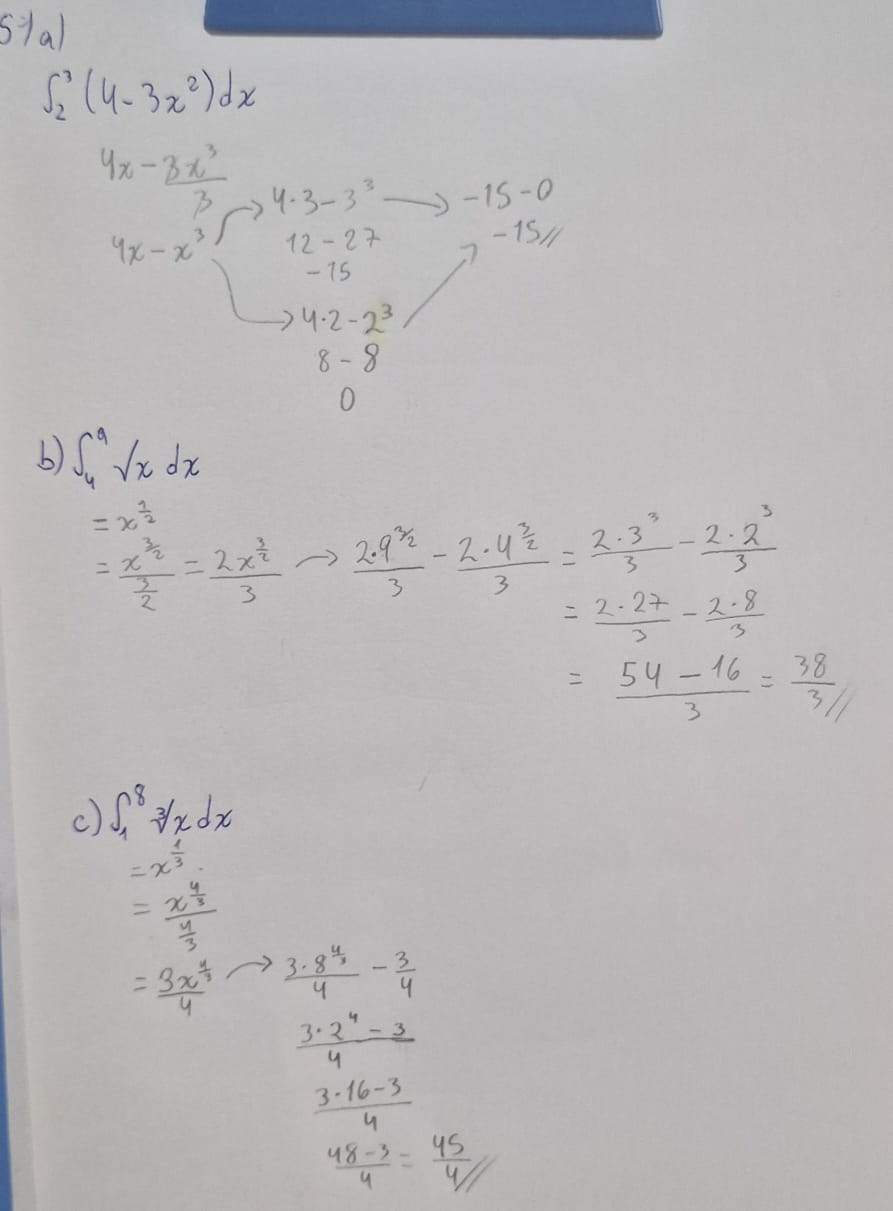 51a)
∫₂³ (4-3x²)dx
4x - 3x³/3
4x - x³ → 4·3-3³ → -15-0
12-27
-15
-15//
→ 4·2-2³
8-8
0
b) ∫₄⁹ √x dx
= x^(1/2)
= x^(3/2)/(3/2) = 2x^(3/2)/3 → 2·9^(3/2)/3 - 2·4^(3/2)/3 = 2·3³/3 - 2·2³/3
= 2·27/3 - 2·8/3
= (54-16)/3 = 38/3//
c) ∫₁⁸ ∛x dx
= x^(1/3)
= x^(4/3)/(4/3)
= 3x^(4/3)/4 → 3·8^(4/3)/4 - 3/4
(3·2⁴-3)/4
(3·16-3)/4
(48-3)/4 = 45/4//